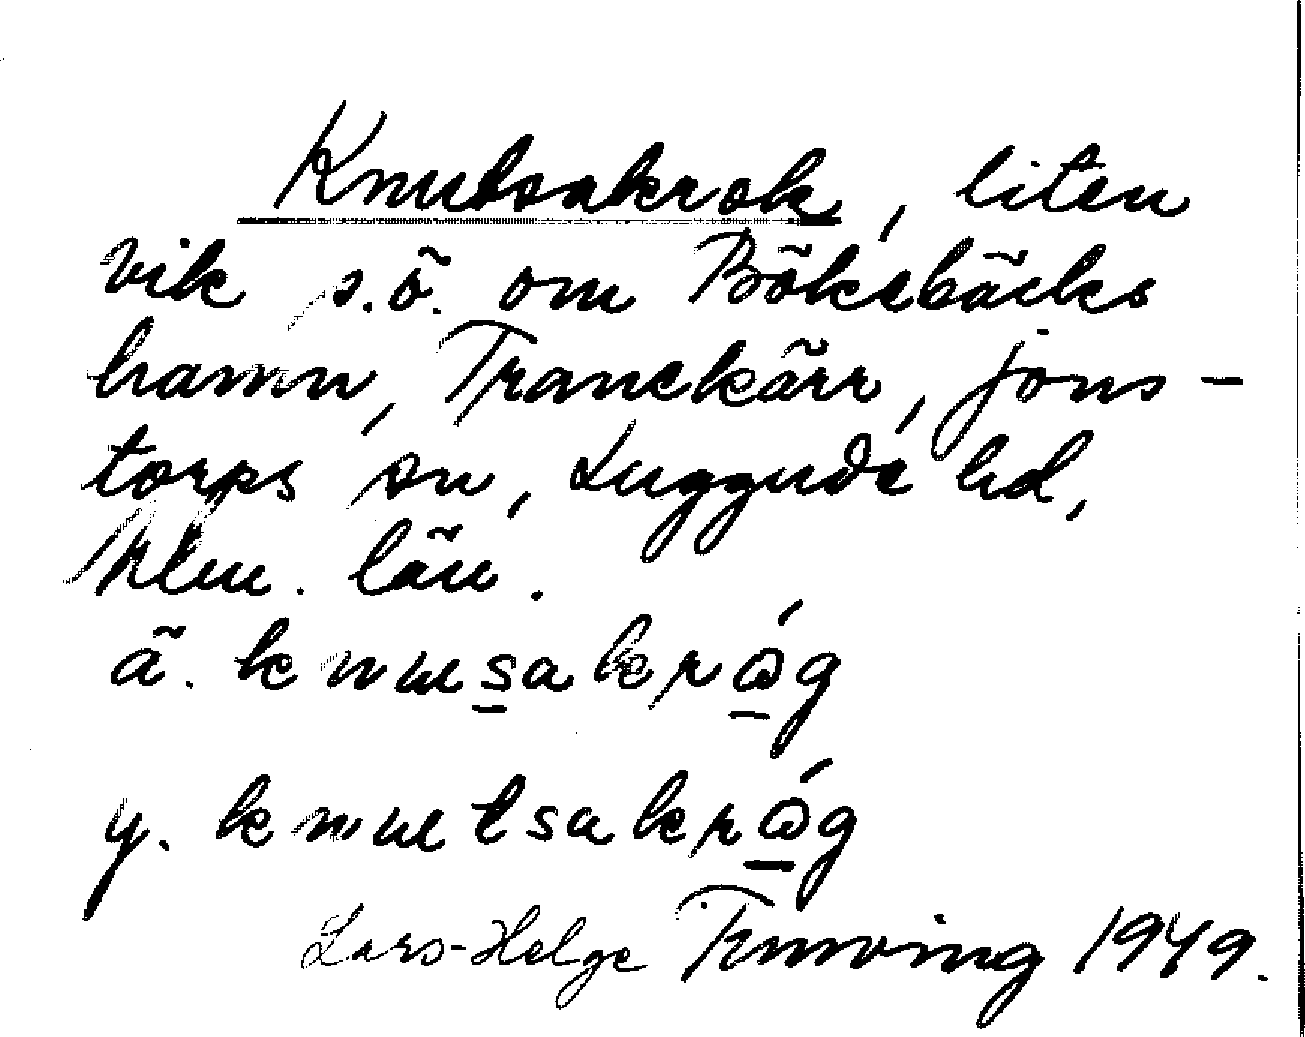 Knutsakrok, liten
vik s.ö. om Bökebäcks
hamn, Tranekärr, Jons-
torps sn, Luggude hd,
Klm. län.
ä. knusakrǫ́g
y. knutsakrǫ́g
Lars-Helge 1949.